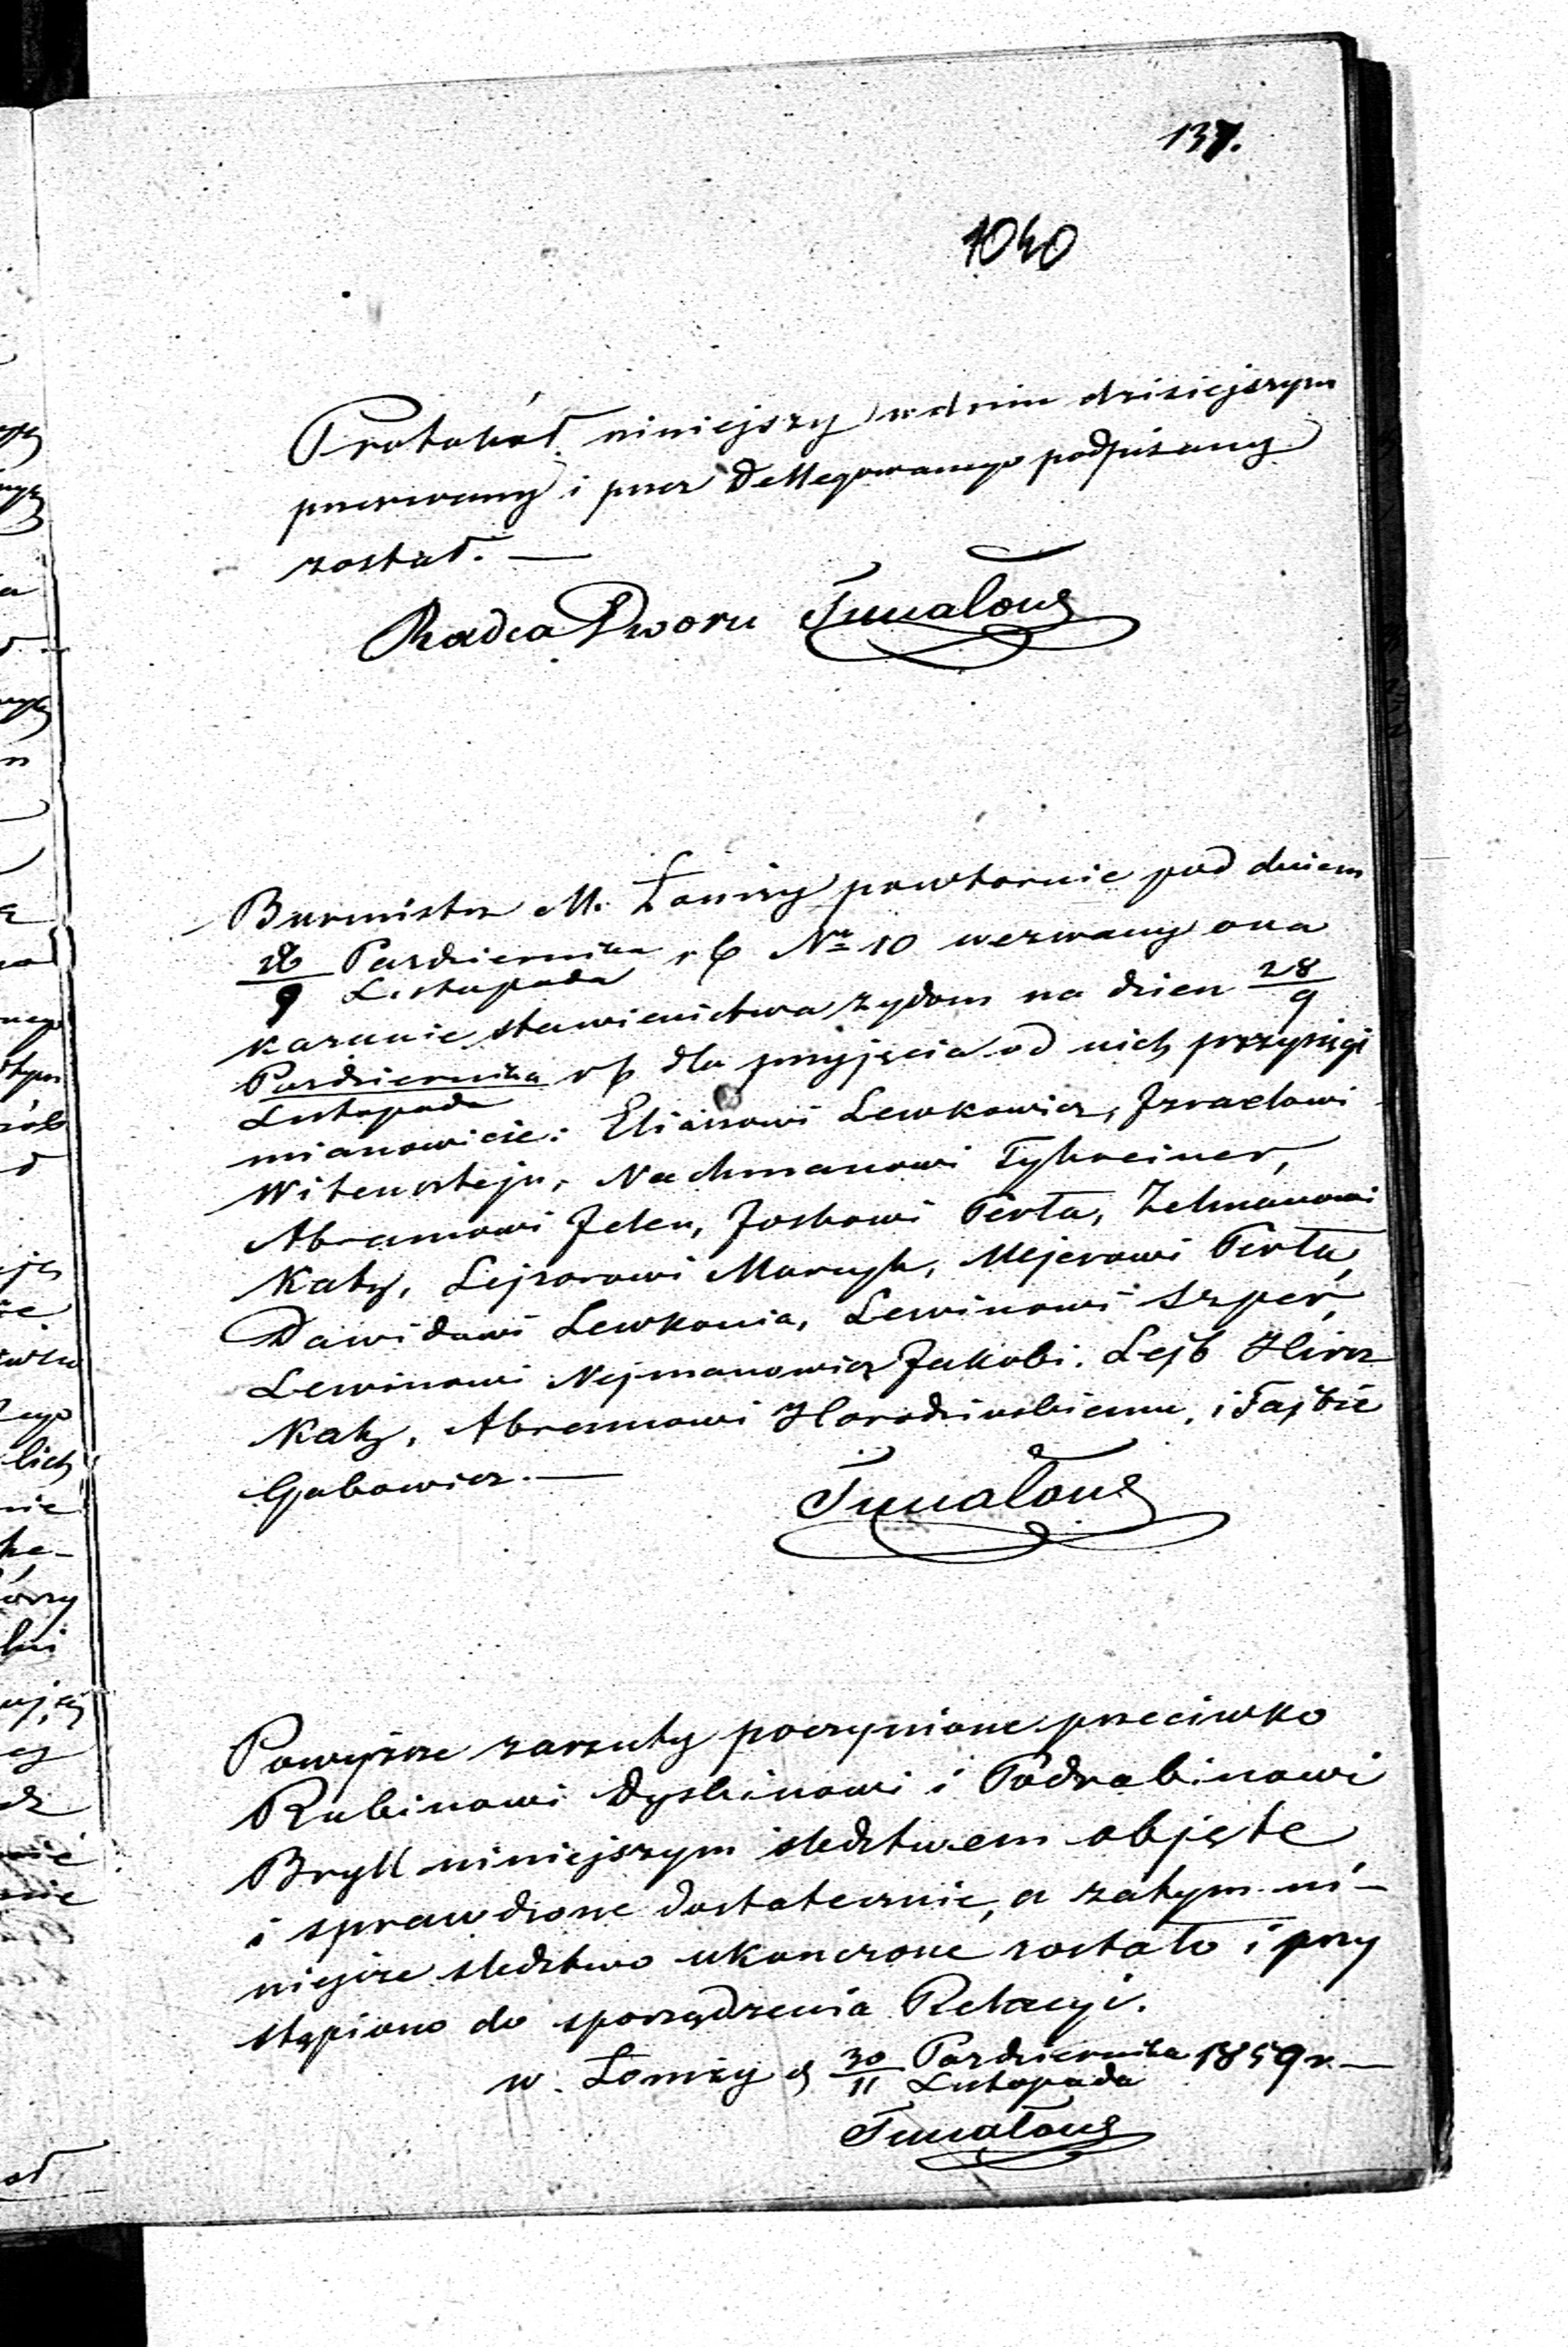 137.
1040
Protokół niniejszy w dniu dzisiejszym
przerwany i przez Dellegowanego podpisany
został. —
Radca Dworu
Burmistrz M. Łomży powtórnie pod dniem
28/9 Pazdziernika/Listopada rb Nr 10 wezwany o na
kazanie stawienictwa żydom na dzien 28/9
Pazdziernika/Listopada rb dla przyjęcia od nich przysięgi
mianowicie: Eliaszowi Lewkowicz, Izraelowi
Witensztejn, Nachmanowi
Abramowi Jeleń, Joskowi Perła, Zelmanowi
Katz, Lejzorowi Mejerowi Perła,
Dawidowi Lewkowicz, Lewinowi Szper,
Lewinowi Nejmanowicz Jakobi. Lejb Hirsz
Katz, Abramowi Horodzinskiemu, i Fajbie
Gabowicz. —
Powyższe zarzuty poczynione przeciwko
Rabinowi Dyskinowi i Podrabinowi
Bryll niniejszym sledztwem objęte
i sprawdzone dostatecznie, a zatym ni-
niejsze sledztwo ukonczone zostało i przy
stąpiono do sporządzenia Relacyi.
w Łomży d 30/11 Pazdziernika/Listopada 1859 r. —